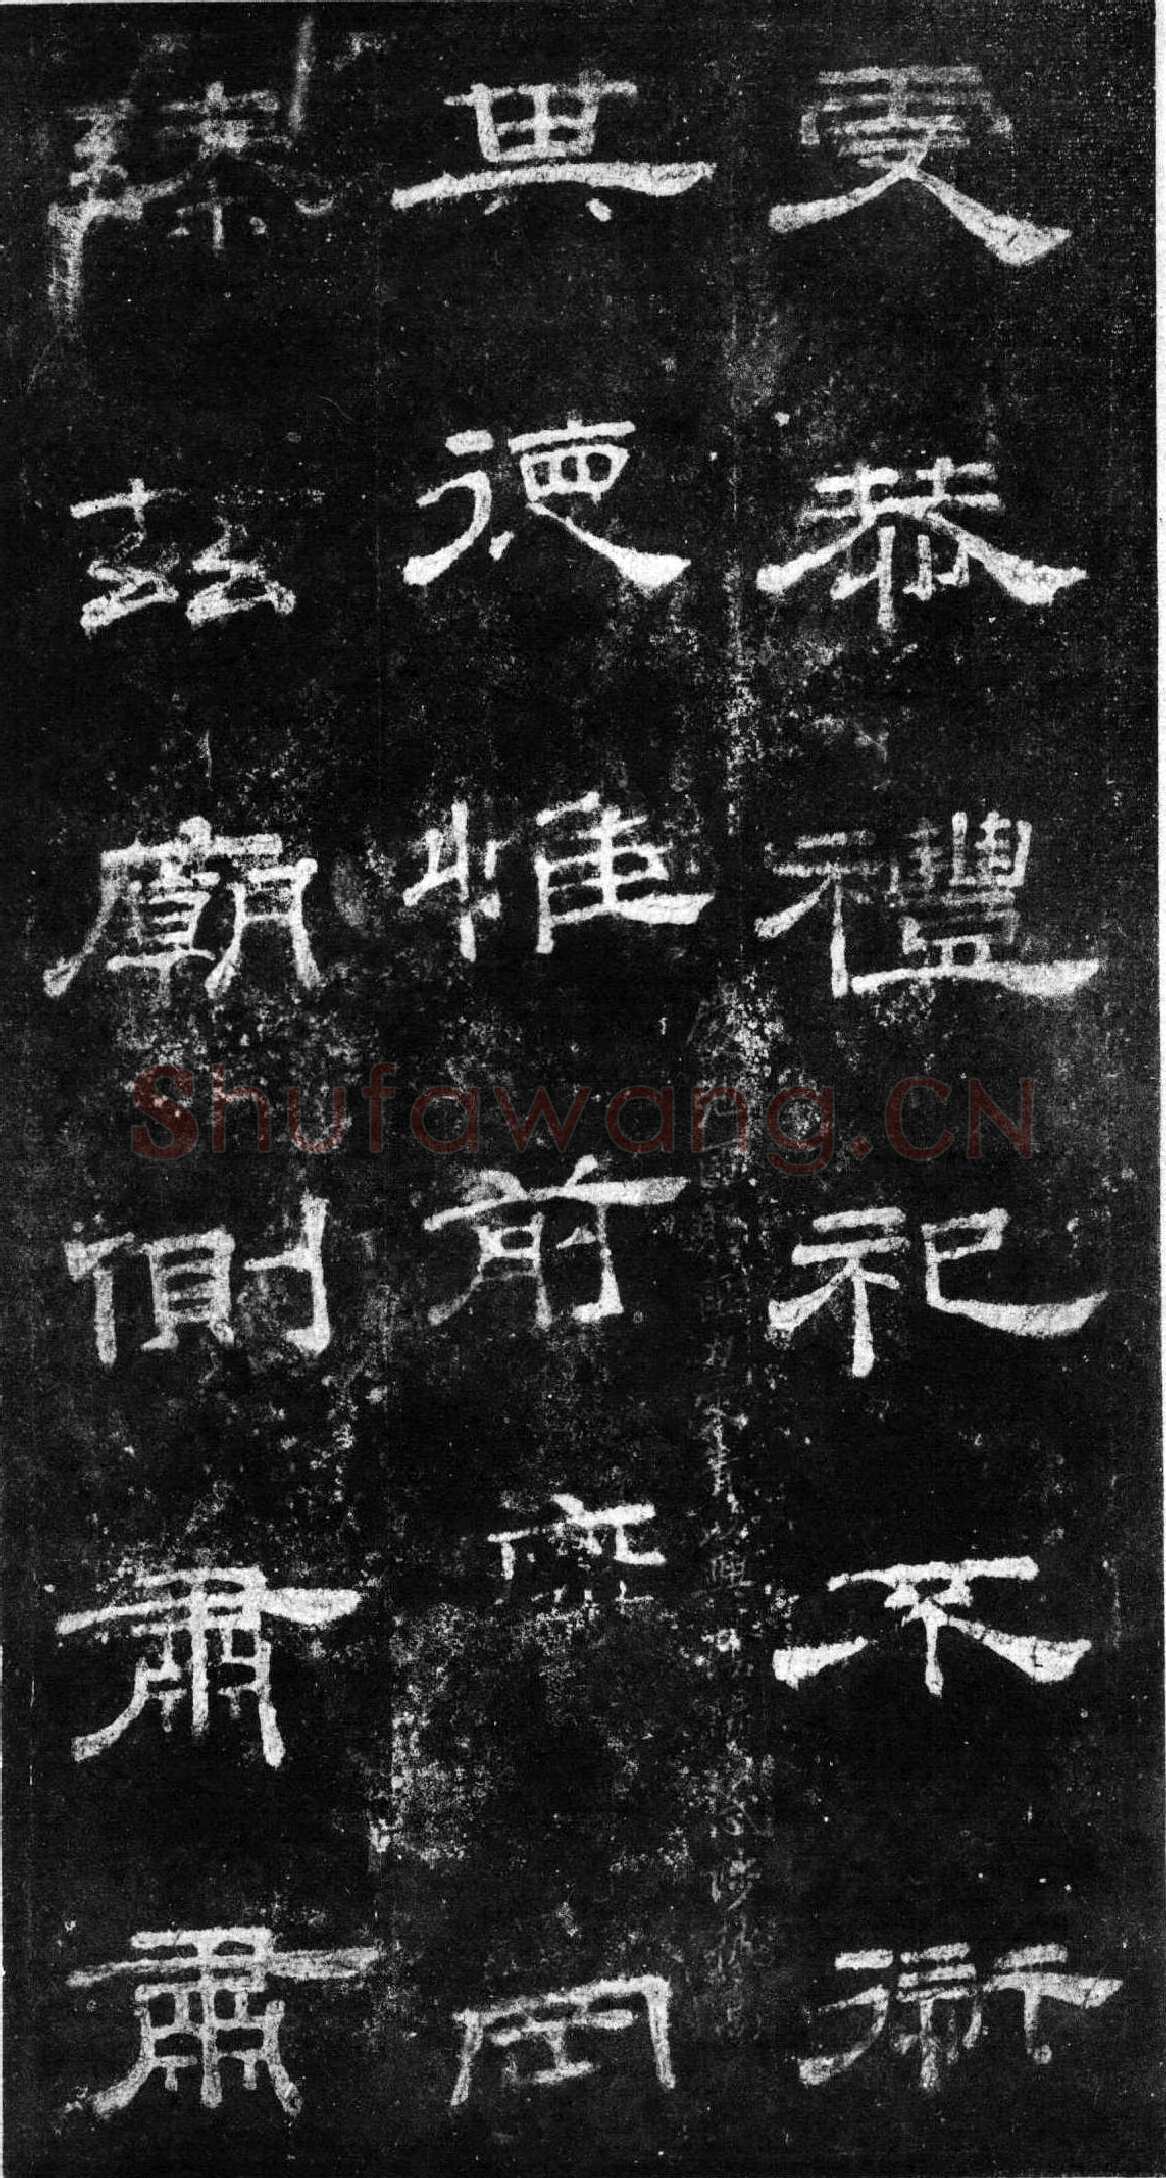 虔恭禮祀不衍
其德惟前罔
臻茲廟側肅肅
Shufawang.CN